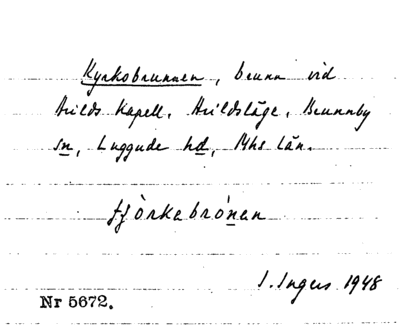 Kyrkobrunnen, brunn vid
Arilds kapell, Arildsläge, Brunnby
sn, Luggude hd, Mhs län.
tjòrkebrónen
I. Ingers 1948
Nr 5672.